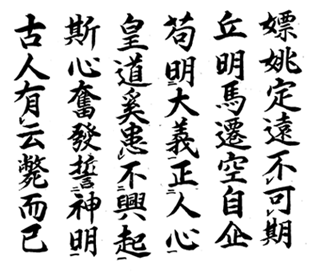 嫖姚定遠不可期
丘明馬遷空自企
苟明大義正人心
皇道奚患不興起
斯心奮發誓神明
古人有云斃而已